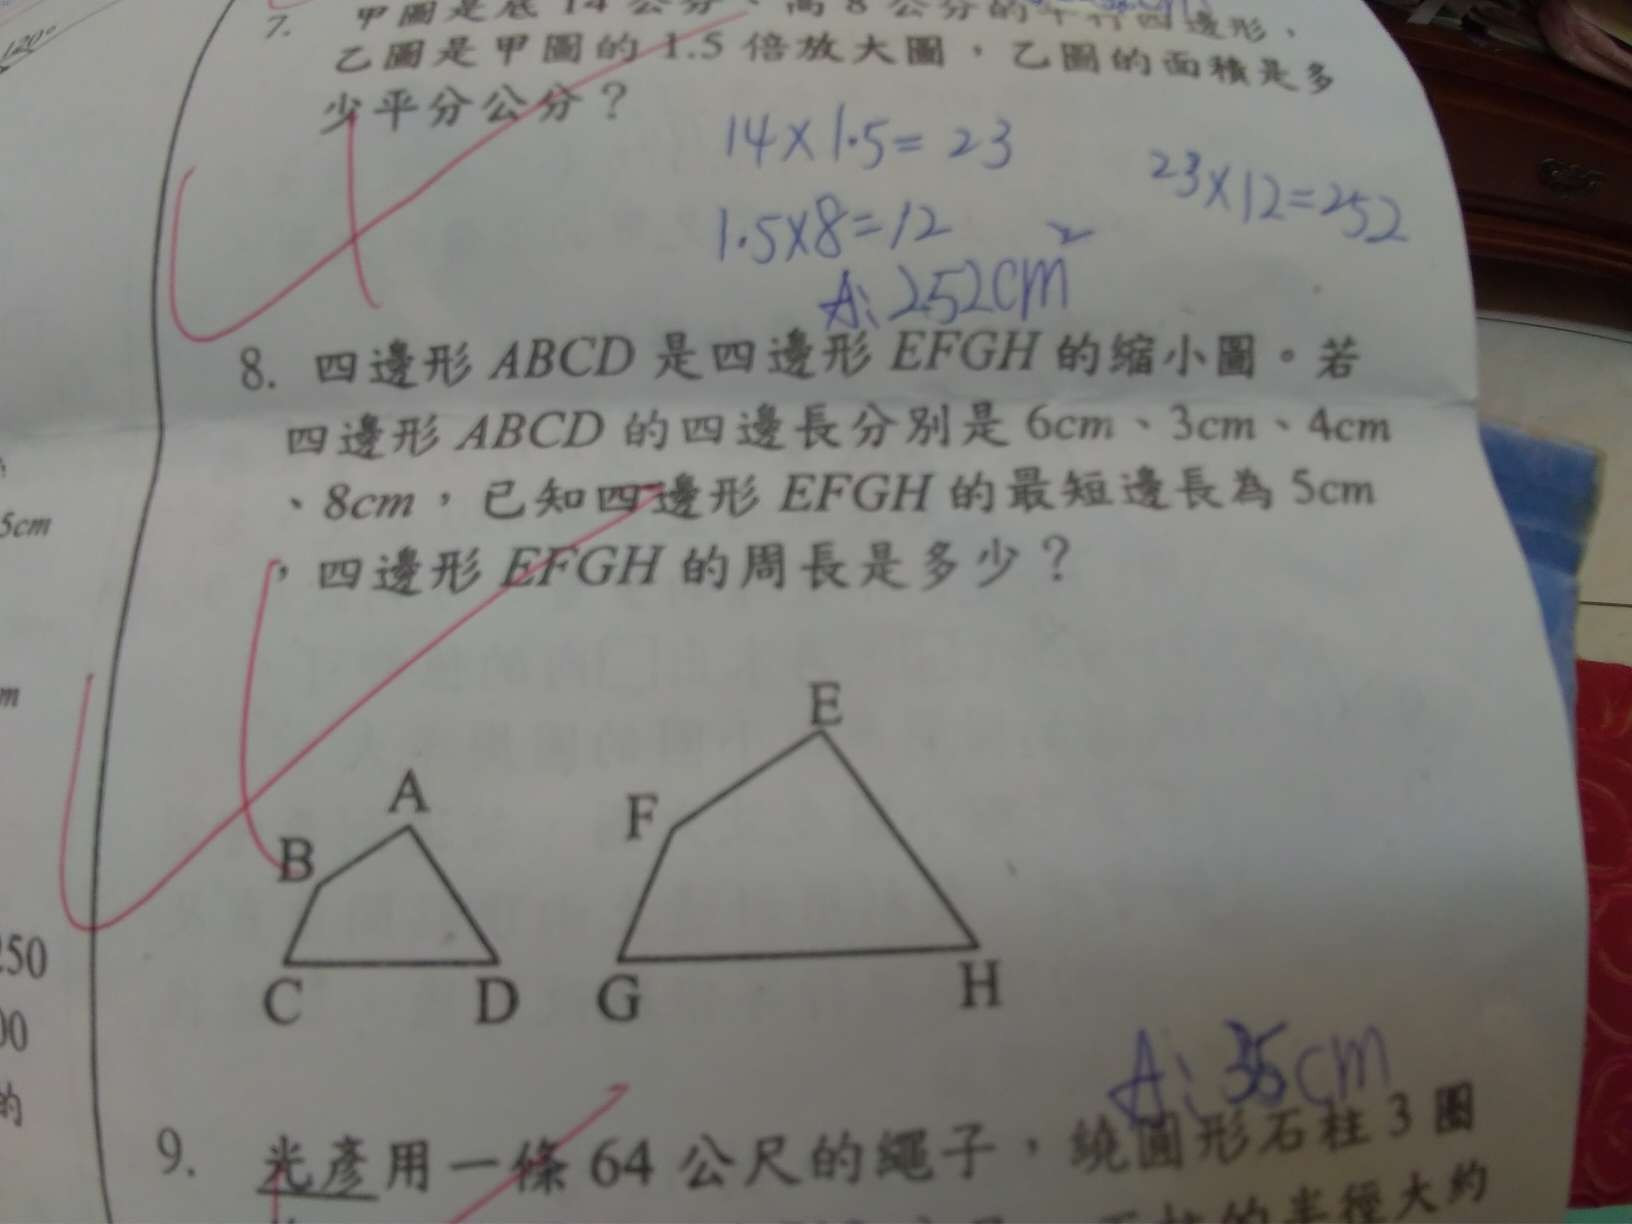 120°
7. 甲圖是底 14 公分、高 8 公分的平行四邊形，
乙圖是甲圖的 1.5 倍放大圖，乙圖的面積是多
少平分公分？
14×1.5=23
23×12=252
1.5×8=12
A: 252cm²
8. 四邊形 ABCD 是四邊形 EFGH 的縮小圖。若
四邊形 ABCD 的四邊長分別是 6cm、3cm、4cm
、8cm，已知四邊形 EFGH 的最短邊長為 5cm
，四邊形 EFGH 的周長是多少？
5cm
m
E
A
F
B
C
D
G
H
250
00
的
A: 35cm
9. 光彥用一條 64 公尺的繩子，繞圓形石柱 3 圈
石柱的半徑大約